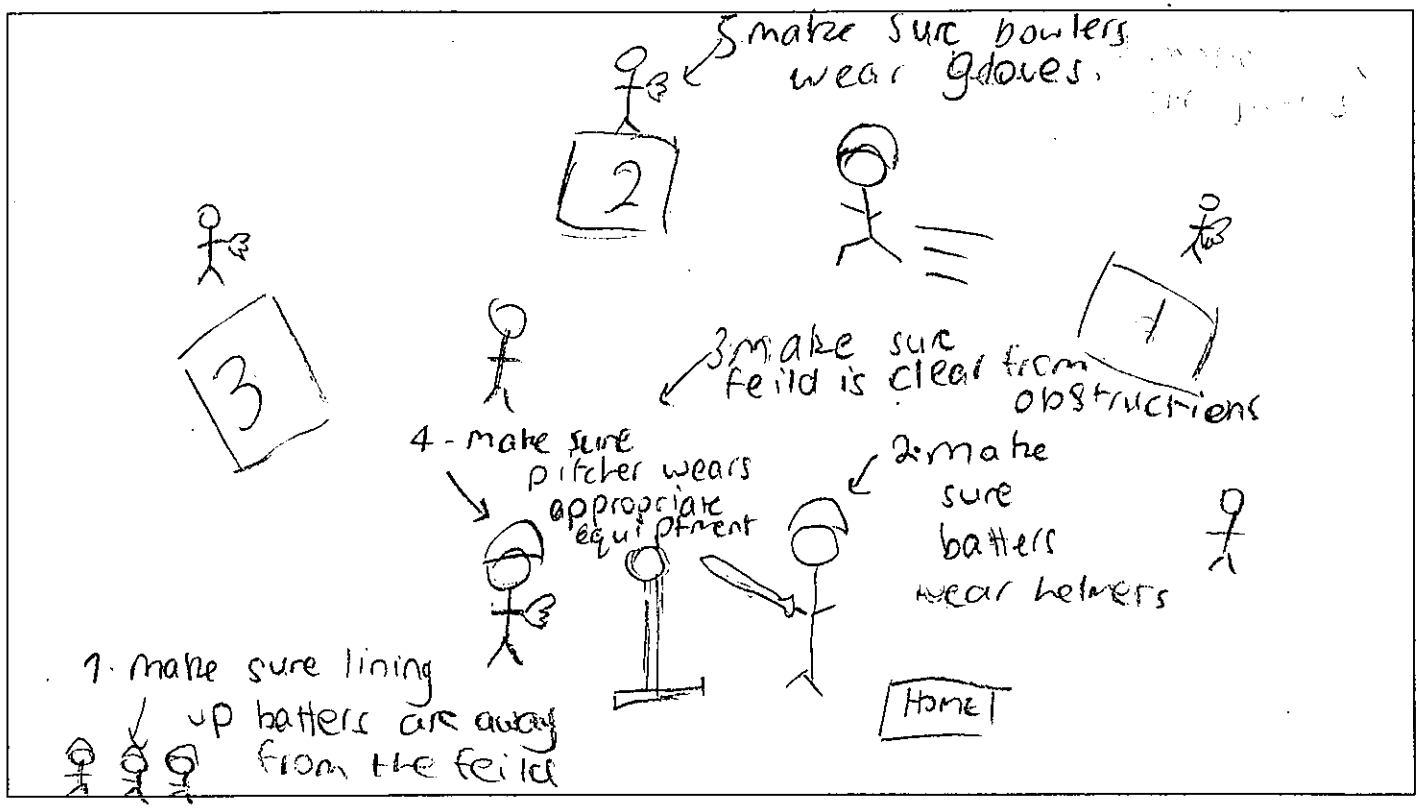 5 make sure bowlers
wear gloves.
2
3
1
3. make sure
feild is clear from
obstructions
4 - make sure
pitcher wears
appropriate
equiptment
2. make
sure
batters
wear helmets
1. make sure lining
up batters are away
from the feild
HOME